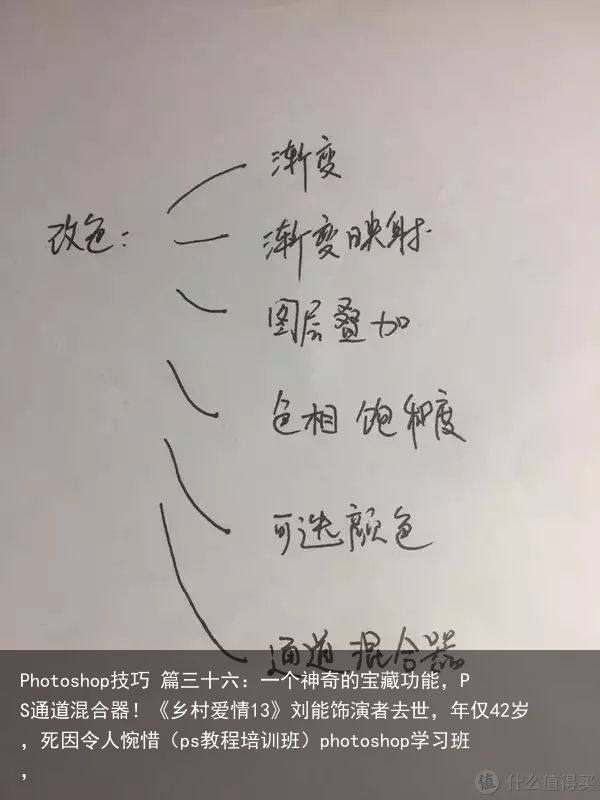 渐变
改色:
渐变映射
图层叠加
色相 饱和度
可选颜色
通道混合器
Photoshop技巧 篇三十六：一个神奇的宝藏功能，P
S通道混合器！《乡村爱情13》刘能饰演者去世，年仅42岁
，死因令人惋惜（ps教程培训班）photoshop学习班
，
值 什么值得买